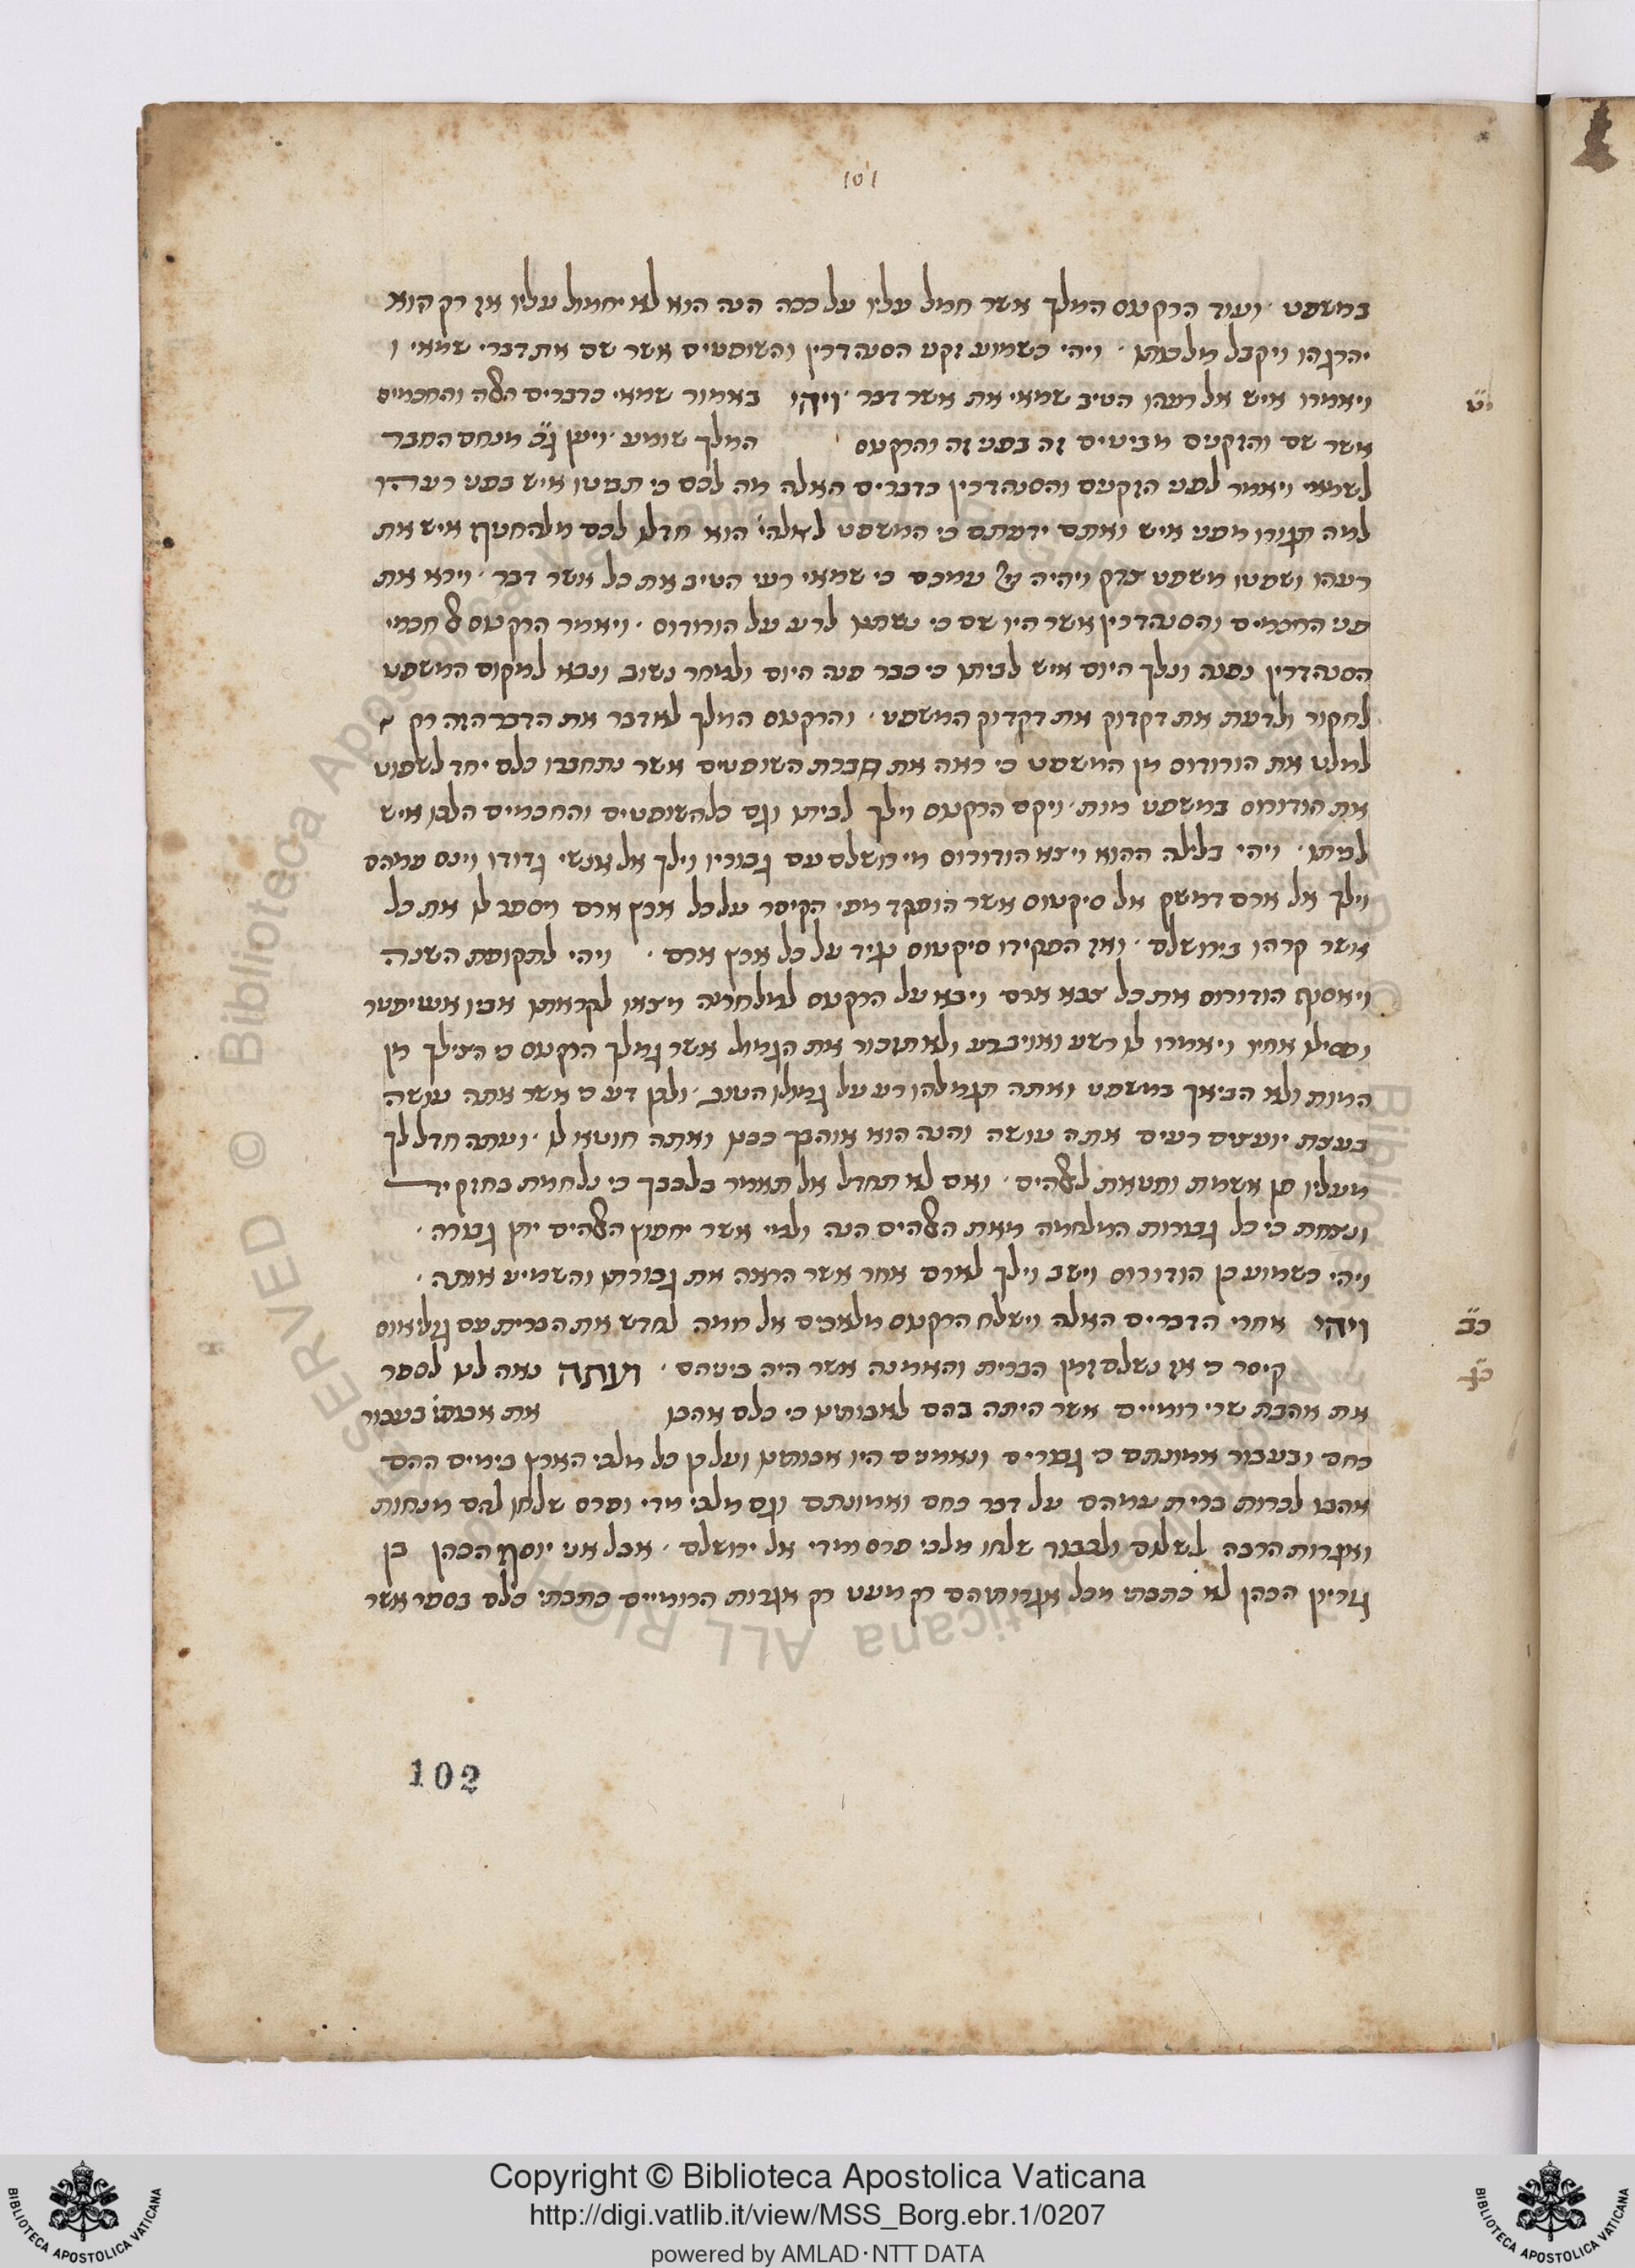 101
במשפט · ועוד הרקנוס המלך אשר חמל עליו על ככה הנה הוא לא יחמול עליו אז רק הוא
יהרגהו ויקבל מלכותו · ויהי כשמוע זקני הסנהדרין והשופטים אשר שם את דברי שמאי ו
ויאמרו איש אל רעהו הטיב שמאי את אשר דבר · ויהי באמור שמאי כדברים האלה והחכמים
י״ט
אשר שם והזקנים מביטים זה בפני זה והרקנוס המלך שומע · ויען גם מנחם החבר
לשמאי ויאמר לפני הזקנים והסנהדרין כדברים האלה מה לכם כי תביטו איש בפני רעהו
למה תגורו מפני איש ואתם ידעתם כי המשפט לאלהי׳ הוא חדלו לכם מלהחטיף איש את
רעהו ושפטו משפט צדק ויהיה עמכם כי שמאי רעי הטיב את כל אשר דבר · וירא את
פני החכמים והסנהדרין אשר היו שם כי נשתנו לרע על הורודוס · ויאמר הרקנוס אל חכמי
הסנהדרין נפנה ונלך היום איש לביתו כי כבר פנה היום ולמחר נשוב ונבא למקום המשפט
לחקור ולדעת את דקדוק את דקדוק המשפט · והרקנוס המלך לא דבר את הדבר הזה רק
למלט את הורודוס מן המשפט כי ראה את חברת השופטים אשר נתחברו כלם יחד לשפוט
את הודורוס במשפט מות · ויקם הרקנוס וילך לביתו וגם כל השופטים והחכמים הלכו איש
לביתו · ויהי בלילה ההוא ויצא הודורוס מירושלם עם גבוריו וילך אל אנשי גדודו וינס עמהם
וילך אל ארם דמשק אל סיקטוס אשר הופקד מפי הקיסר על כל ארץ ארם ויספר לו את כל
אשר קרהו בירושלם · ואז הפקידו סיקטוס נגיד על כל ארץ ארם · ויהי לתקופת השנה
ויאסוף הודורוס את כל צבא ארם ויבא על הרקנוס למלחמה ויצאו לקראתו אביו אנטיפטר
ופסילו אחיו ויאמרו לו רשע ואויב רע ולא תזכור את הגמול אשר גמלך הרקנוס כי הצילך מן
המות ולא הביאך במשפט ואתה תגמלהו רע על גמולו הטוב · ולכן דע כי אשר אתה עושה
בעצת יועצים רעים אתה עושה והנה הוא אוהבך כבנו ואתה חוטא לו · ועתה חדל לך
מעליו פן אשמת וחטאת לאלהים · ואם לא תחדל אל תאמר בלבבך כי נלחמת בחזק יד
ונצחת כי כל גבורות המלחמה מאת האלהים הנה ולמי אשר יחפוץ האלהים יתן גבורה ·
ויהי כשמוע כן הודורוס וישב וילך לארם אחר אשר הראה את גבורתו והשמיע אותה ·
ויהי אחרי הדברים האלה וישלח הרקנוס מלאכים אל רומה לחדש את הברית עם גוליאוס
כ״ב
קיסר כי אז נשלם זמן הברית והאמנה אשר היה ביניהם · ועתה נאה לנו לספר
את אהבת שרי רומיים אשר היתה בהם לאבותינו כי כלם אהבו את אבותי׳ בעבור
כחם ובעבור אמונתם כי גבורים ונאמנים היו אבותינו ועל כן כל מלכי הארץ בימים ההם
אהבו לכרות ברית עמהם על דבר כחם ואמונתם וגם מלכי מדי ופרס שלחו להם מנחות
ואגרות הרבה לשלום ולכבוד שלחו מלכי פרס ומדי אל ירושלם · אבל אני יוסף הכהן בן
גוריון הכהן לא כתבתי מכל אגרותיהם רק מעט רק אגרות הרומיים כתבתי כלם בספר אשר
102
Copyright © Biblioteca Apostolica Vaticana
http://digi.vatlib.it/view/MSS_Borg.ebr.1/0207
powered by AMLAD·NTT DATA
BIBLIOTECA APOSTOLICA VATICANA
BIBLIOTECA APOSTOLICA VATICANA